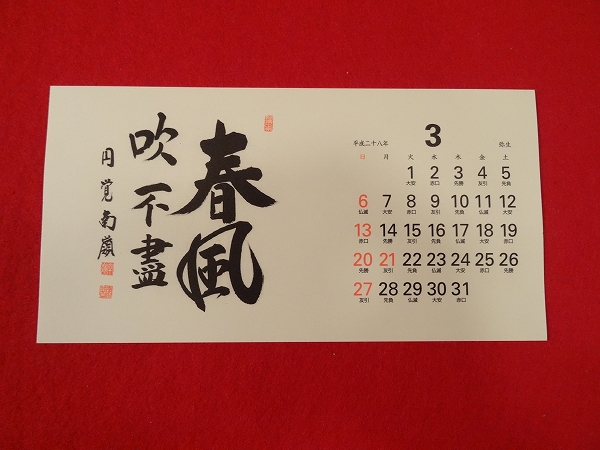 春風
吹不盡
円覚南嶺
平成二十八年 3 弥生
日 月 火 水 木 金 土
1 2 3 4 5
大安 赤口 先勝 友引 先負
6 7 8 9 10 11 12
仏滅 大安 赤口 友引 先負 仏滅 大安
13 14 15 16 17 18 19
赤口 先勝 友引 先負 仏滅 大安 赤口
20 21 22 23 24 25 26
先勝 友引 先負 仏滅 大安 赤口 先勝
27 28 29 30 31
友引 先負 仏滅 大安 赤口